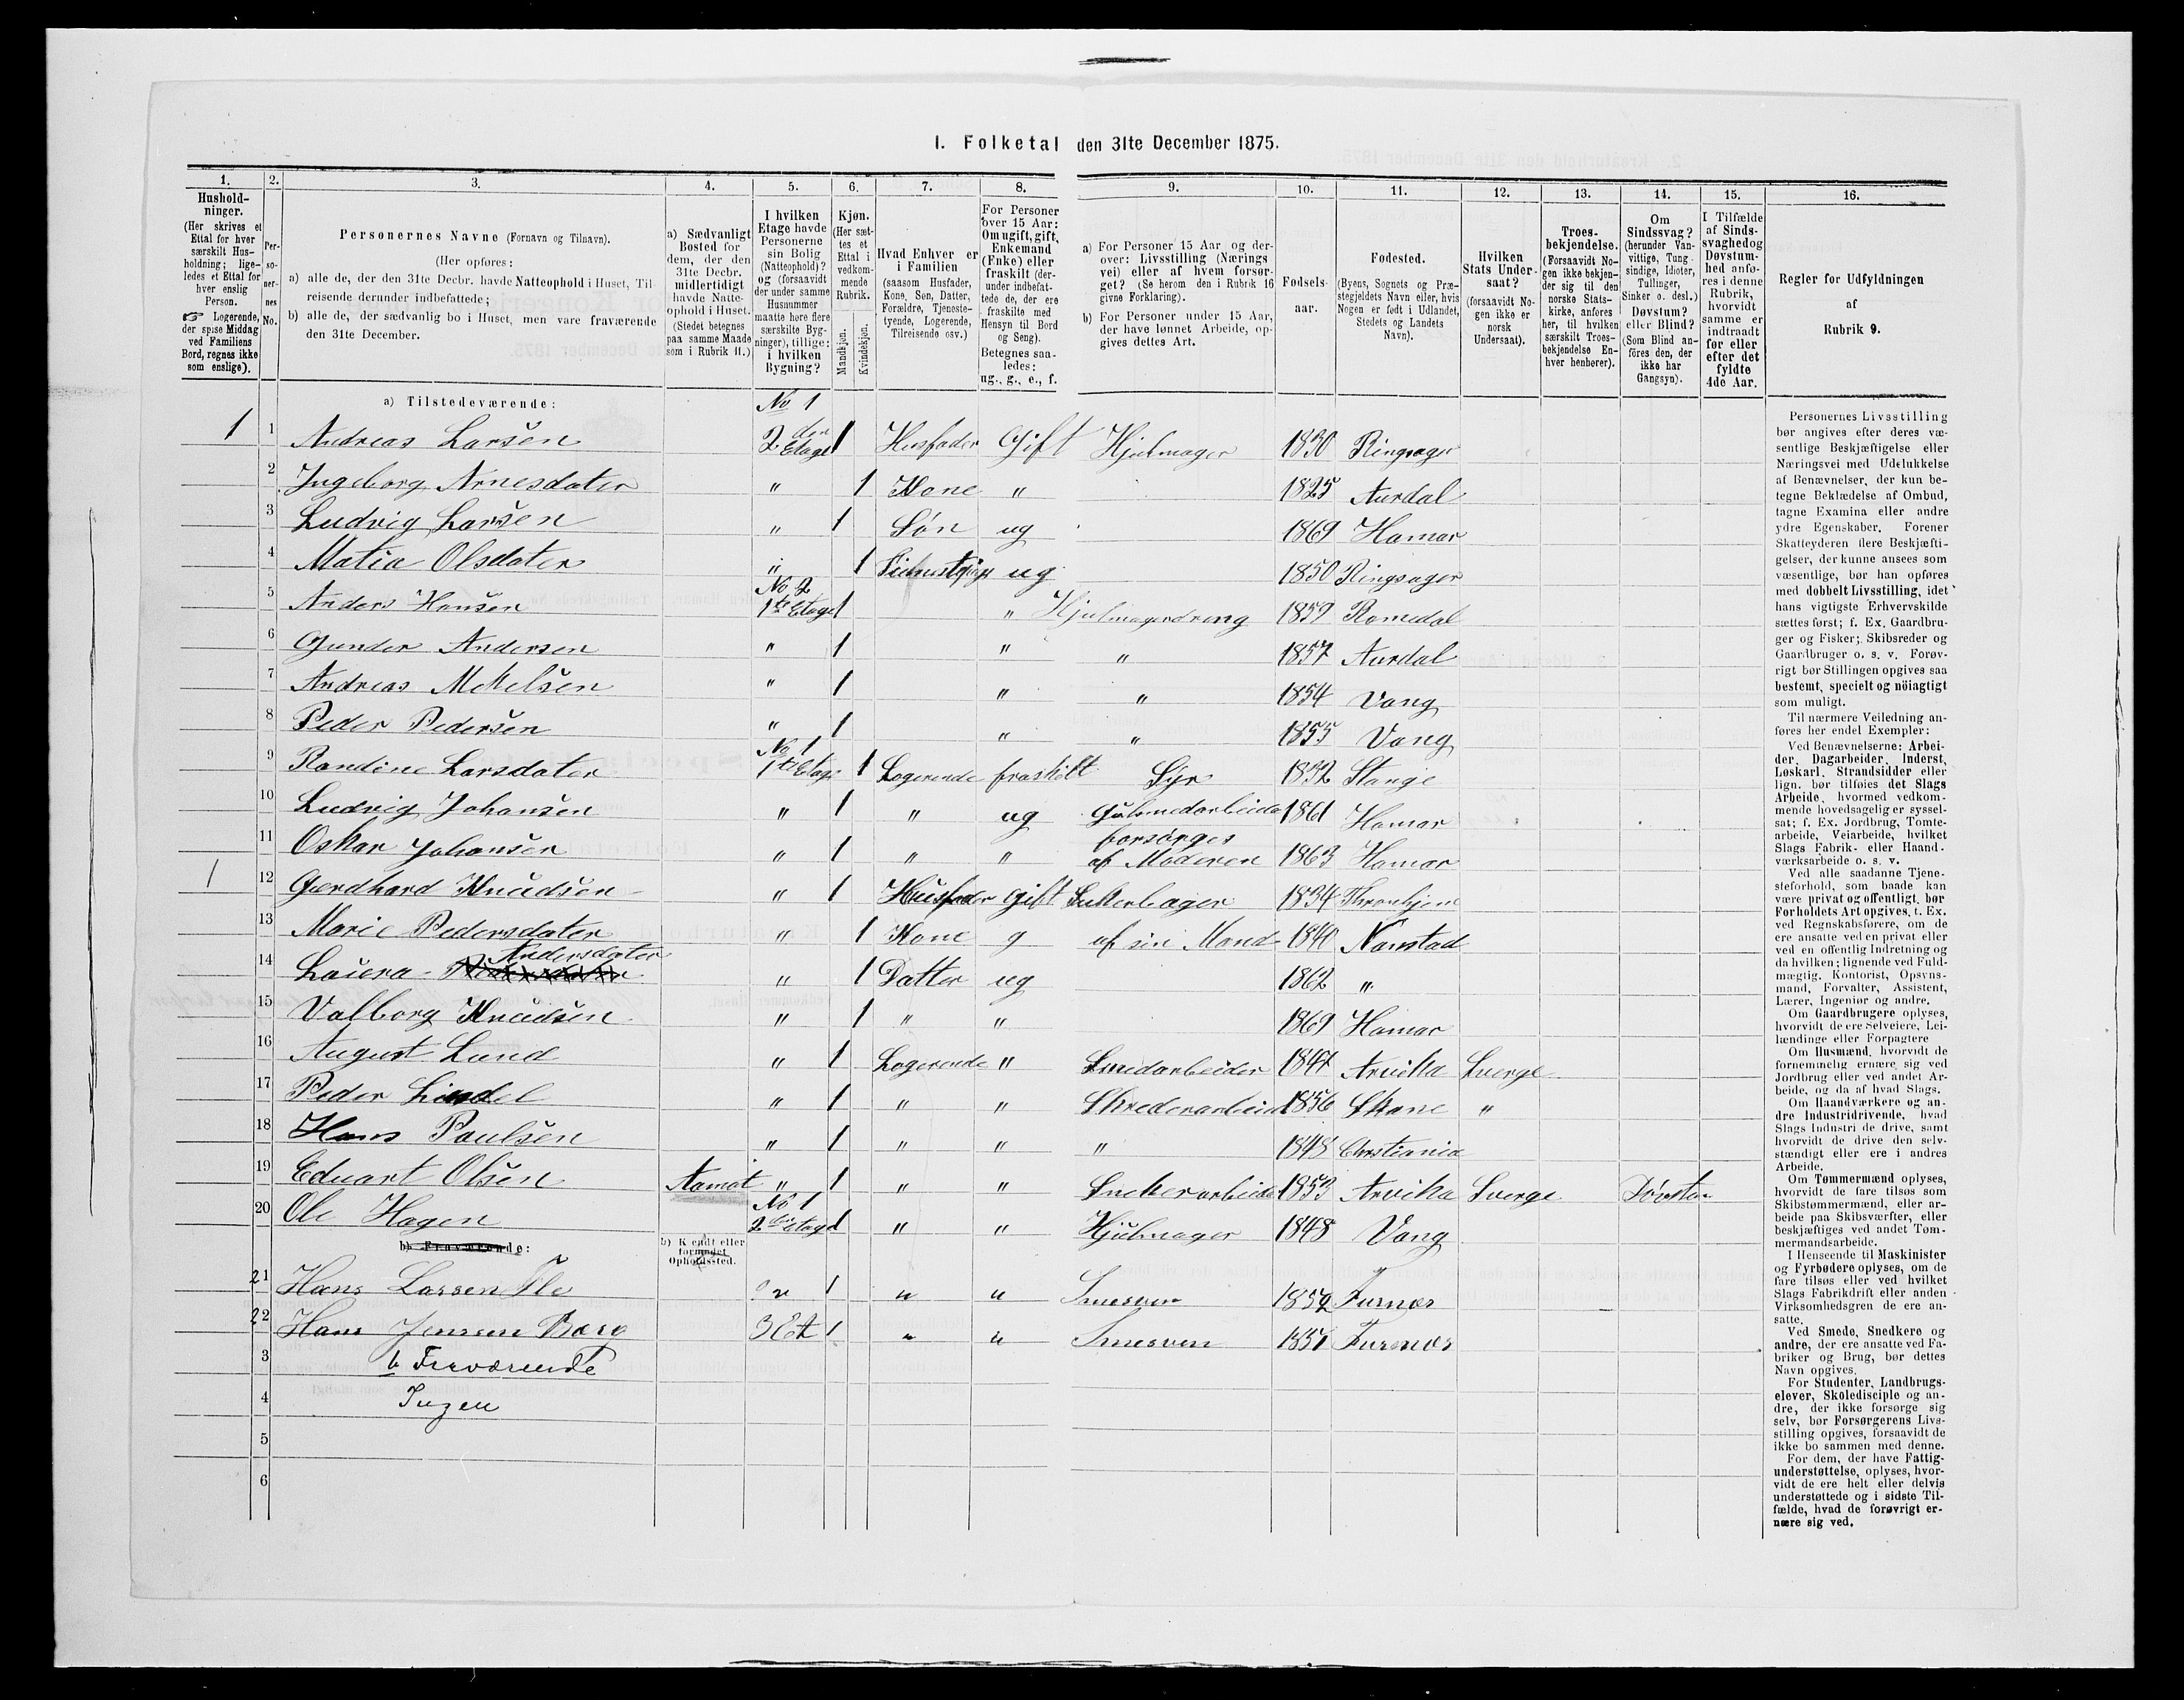 I. Folketal den 31te December 1875.
1. 2. 3. 4. 5. 6. 7. 8. 9. 10. 11. 12. 13. 14. 15. 16.
Hushold-
ninger.
(Her skrives et
Ettal for hver
særskilt Hus-
holdning; lige-
ledes et Ettal for
hver enslig
Person.
☞ Logerende,
der spise Middag
ved Familiens
Bord, regnes ikke
som enslige).
Per-
so-
ner-
nes
No.
Personernes Navne (Fornavn og Tilnavn).
(Her opføres:
a) alle de, der den 31te Decbr. havde Natteophold i Huset, Til-
reisende derunder indbefattede;
b) alle de, der sædvanlig bo i Huset, men vare fraværende
den 31te December.
a) Sædvanligt
Bosted for
dem, der den
31te Decbr.
midlertidigt
havde Natte-
ophold i Huset.
(Stedet betegnes
paa samme Maade
som i Rubrik 11.)
I hvilken
Etage havde
Personerne
sin Bolig
(Natteophold)?
og (forsaavidt
der under samme
Husnummer
maatte høre flere
særskilte Byg-
ninger), tillige:
i hvilken
Bygning?
Kjøn.
(Her sæt-
tes et
Ettal i
vedkom-
mende
Rubrik.
Mandkjøn.
Kvindekjøn.
Hvad Enhver er
i Familien
(saasom Husfader,
Kone, Søn, Datter,
Forældre, Tjeneste-
tyende, Logerende,
Tilreisende osv.)
For Personer
over 15 Aar:
Om ugift, gift,
Enkemand
(Enke) eller
fraskilt (der-
under indbefat-
tede de, der ere
fraskilte med
Hensyn til Bord
og Seng).
Betegnes saa-
ledes:
ug., g., e., f.
a) For Personer 15 Aar og der-
over: Livsstilling (Nærings
vei) eller af hvem forsør-
get? (Se herom den i Rubrik 16
givne Forklaring).
b) For Personer under 15 Aar,
der have lønnet Arbeide, op-
gives dettes Art.
Fødsels-
aar.
Fødested.
(Byens, Sognets og Præ-
stegjeldets Navn eller, hvis
Nogen er født i Udlandet,
Stedets og Landets
Navn).
Hvilken
Stats Under-
saat?
(forsaavidt No-
gen ikke er
norsk
Undersaat).
Troes-
bekjendelse.
(Forsaavidt No-
gen ikke bekjen-
der sig til den
norske Stats-
kirke, anføres
her, til hvilken
særskilt Troes-
bekjendelse En-
hver henhører).
Om
Sindssvag?
(herunder Van-
vittige, Tung
sindige, Idioter,
Tullinger,
Sinker o. desl.)
Døvstum?
eller Blind?
(Som Blind an-
föres den, der
ikke har
Gangsyn).
I Tilfælde
af Sinds-
svaghed og
Døvstum-
hed anfø-
res i denne
Rubrik,
hvorvidt
samme er
indtraadt
før eller
efter det
fyldte
4de Aar.
Regler for Udfyldningen
af
Rubrik 9.
a) Tilstedeværende: No 1
1 1 Andreas Larsen 2 den Etage 1 Husfader Gift Hjulmager 1830 Ringsager
2 Ingeborg Arnesdater " 1 Kone " 1825 Aurdal
3 Ludvig Larsen " 1 Søn ug 1869 Hamar
4 Matia Olsdater " 1 ug 1850 Ringsager
No 2
5 Anders Hansen 1te Etage 1 " Hjulmagerdreng 1859 Romedal
6 Gunder Andersen " 1 " " 1857 Aurdal
7 Andreas Mekelsen " 1 " " 1854 Vang
8 Peder Pedersen " 1 " " 1855 Vang
No 1
9 Randine Larsdater 1te Etage 1 Logerende fraskilt Syr 1832 Stange
10 Ludvig Johansen " 1 " ug 1861 Hamar
11 Oskar Johansen " 1 " " forsørges af Moderen 1863 Hamar
1 12 Gerdhard Knudsen " 1 Husfader gift Sukkerbager 1834
13 Marie Pedersdater " 1 Kone g af sin Mand 1840 Namstad
14 Laura Andersdater " 1 Datter ug 1862 "
15 Valborg Knudsen " 1 " " 1869 Hamar
16 August Lund " 1 Logerende " Smedarbeider 1847 Arvika Sverge
17 Peder Lindel " 1 " " Skrederarbeid 1856 Skane "
18 Hans Paulsen " 1 " " " 1848 Christiania
19 Eduart Olsen Aamot " 1 " " Snekerarbeide 1853 Arvika Sverge Døvstum
No 1
20 Ole Hagen 2den Etage 1 " " Hjulmager 1848 Vang
b) Fraværende: b) Kjendt eller
formodet
Opholdssted.
21 Hans Larsen Fle " 1 " " Smesven 1852 Furnæs
22 Hans Jensen Berg 3 Et 1 " " Smesven 1851 Furenæs
3 b Fraværende
4 Ingen
5
6
Personernes Livsstilling
bør angives efter deres væ-
sentlige Beskjæftigelse eller
Næringsvei med Udelukkelse
af Benævnelser, der kun be-
tegne Beklædelse af Ombud,
tagne Examina eller andre
ydre Egenskaber. Forener
Skatteyderen flere Beskjæfti-
gelser, der kunne ansees som
væsentlige, bør han opføres
med dobbelt Livsstilling, idet
hans vigtigste Erhvervskilde
sættes først; f. Ex. Gaardbru-
ger og Fisker; Skibsreder og
Gaardbruger o. s. v. Forøv-
rigt bør Stillingen opgives saa
bestemt, specielt og nöiagtigt
som muligt.
Til nærmere Veiledning an-
føres her endel Exempler:
Ved Benævnelserne: Arbei-
der, Dagarbeider, Inderst,
Løskarl, Strandsidder eller
lign. bør tilføies det Slags
Arbeide, hvormed vedkom-
mende hovedsagelig er syssel-
sat; f. Ex. Jordbrug, Tomte-
arbeide, Veiarbeide, hvilket
Slags Fabrik- eller Haand-
værksarbeide o. s. v.
Ved alle saadanne Tjene-
steforhold, som baade kan
være privat og offentligt, bør
Forholdets Art opgives, t. Ex.
ved Regnskabsførere, om de
ere ansatte ved en privat eller
ved en offentlig Indretning og
da hvilken; lignende ved Fuld-
mægtig, Kontorist, Opsyns-
mand, Forvalter, Assistent,
Lærer, Ingeniør og andre.
Om Gaardbrugere oplyses,
hvorvidt de ere Selveiere, Lei-
lændinge eller Forpagtere
Om Husmænd, hvorvidt de
fornemmelig ernære sig ved
Jordbrug eller ved andet Ar-
beide, og da af hvad Slags.
Om Haandværkere og an-
dre Industridrivende, hvad
Slags Industri de drive, samt
hvorvidt de drive den selv-
stændigt eller ere i andres
Arbeide.
Om Tømmermænd oplyses,
hvorvidt de fare tilsøs som
Skibstømmermænd, eller ar-
beide paa Skibsværfter, eller
beskjæftiges ved andet Tøm-
mermandsarbeide.
I Henseende til Maskinister
og Fyrbødere oplyses, om de
fare tilsøs eller ved hvilket
Slags Fabrikdrift eller anden
Virksomhedsgren de ere an-
satte.
Ved Smede, Snedkere og
andre, der ere ansatte ved Fa-
briker og Brug, bør dettes
Navn opgives.
For Studenter, Landbrugs-
elever, Skoledisciple og an-
dre, der ikke forsørge sig
selv, bør Forsørgerens Livs-
stilling opgives, forsaavidt de
ikke bo sammen med denne.
For dem, der have Fattig-
understøttelse, oplyses, hvor-
vidt de ere helt eller delvis
understøttede og i sidste Til-
fælde, hvad de forøvrigt er-
nære sig ved.